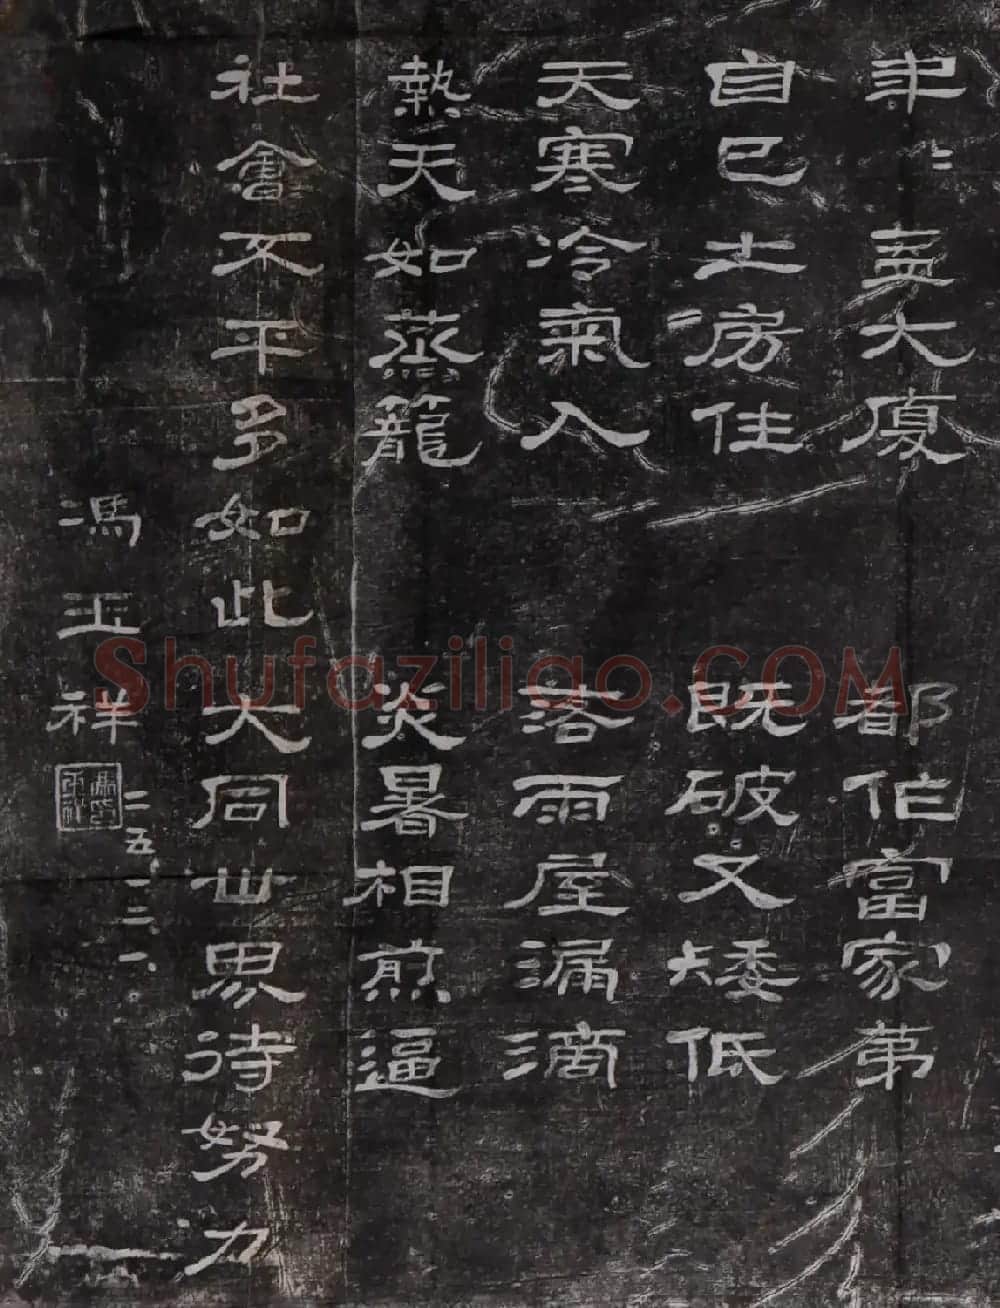 年々盖大廈 都作富家第
自己土房住 既破又矮低
天寒冷氣入 落雨屋漏滴
熱天如蒸籠 炎暑相煎逼
社會不平多如此大同世界待努力
馮玉祥
二五、一二、一、
Shufaziligo.COM